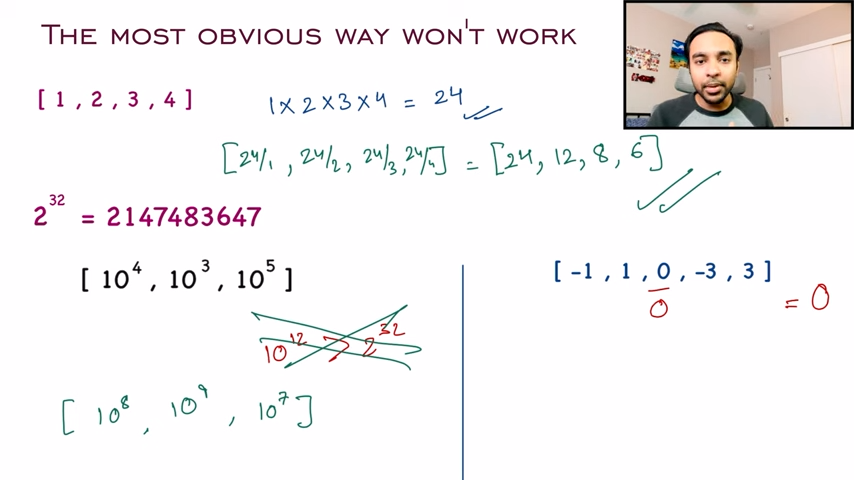 THE MOST OBVIOUS WAY WON'T WORK
[ 1 , 2 , 3 , 4 ] 1 × 2 × 3 × 4 = 24
[24/1 , 24/2 , 24/3 , 24/4] = [24, 12, 8, 6]
2^32 = 2147483647
[ 10^4 , 10^3 , 10^5 ]
10^12 > 2^32
[ 10^8 , 10^9 , 10^7 ]
[ -1 , 1 , 0 , -3 , 3 ]
0 = 0